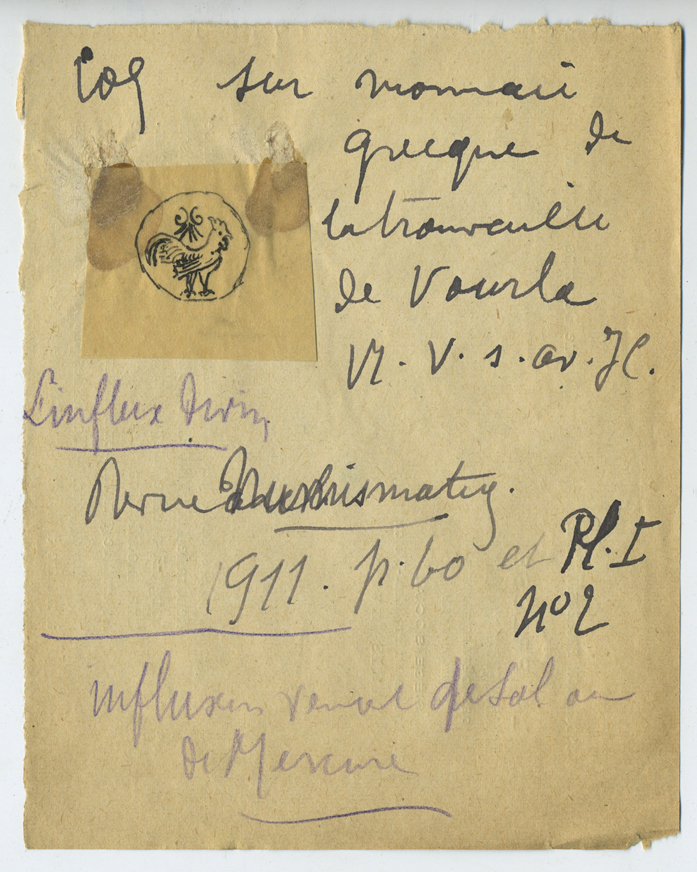 Coq sur monnaie
grecque de
la trouvaille
de Vourla
VI. V. s. av. JC.
L'influx divin
Revue Numismatiq.
1911. p. 60 et Pl. I
no 2
influx venant de Sol ou
de Mercure